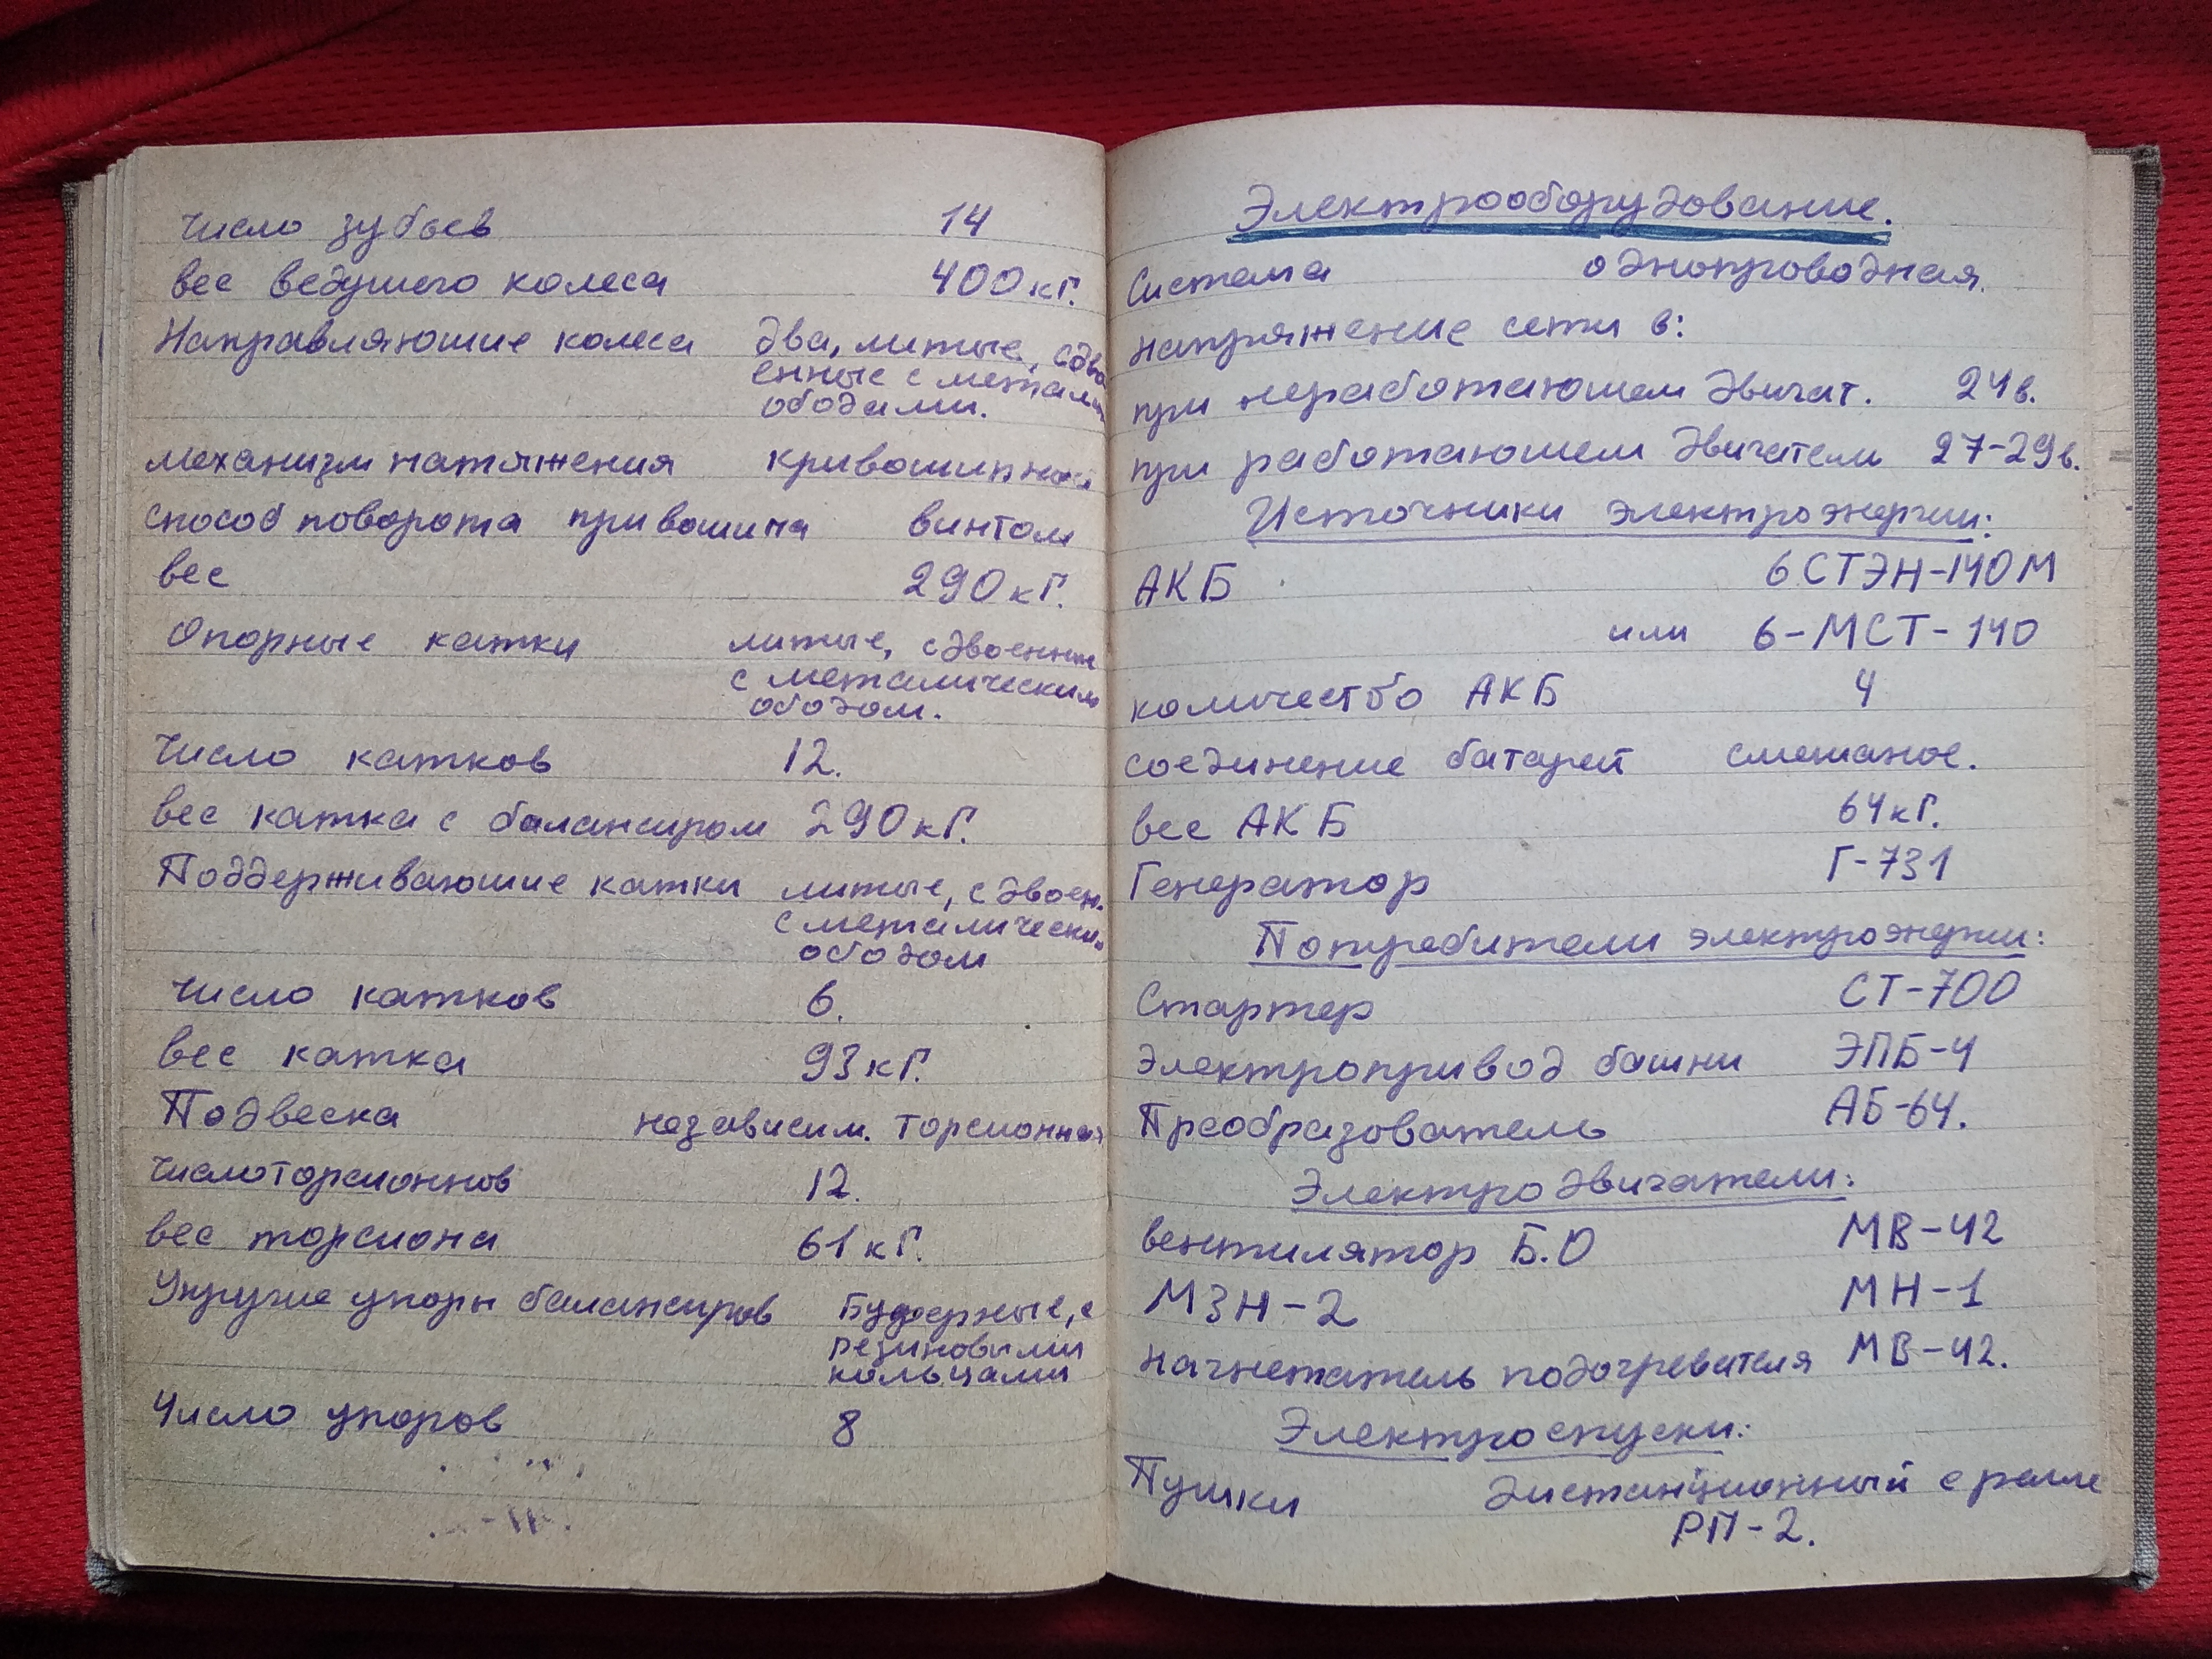 число зубьев 14
вес ведушего колеса 400 кг.
Направляюшие колеса два, литые, сдво
енные с метали
ободами.
механизм натяжения кривошипно
способ поворота привошипа винтом
вес 290 кг.
Опорные катки литые, сдвоенные
с металическим
ободом.
Число катков 12.
вес катка с балансиром 290 кг.
Поддерживаюшие катки литые, сдвоен.
с металически
ободом
число катков 6.
вес катка 93 кг.
Подвеска независим. торсионная
число торсионнов 12.
вес торсиона 61 кг.
Упругие упоры балансиров Буферные, с
резиновыми
кольцами
Число упоров 8
Электрооборудование.
Система однопроводная.
напряжение сети в:
при неработаюшем двигат. 24в.
при работаюшем двигатели 27-29в.
Источники электроэнергии:
АКБ 6СТЭН-140М
или 6-МСТ-140
количество АКБ 4
соединение батарей смешаное.
вес АКБ 64кг.
Генератор Г-731
Потребители электроэнергии:
Стартер СТ-700
электропривод башни ЭПБ-4
Преобразователь АБ-64.
Электродвигатели:
вентилятор Б.О МВ-42
МЗН-2 МН-1
нагнетатель подогревателя МВ-42.
Электроспуски:
Пушки дистанционный с релле
РП-2.